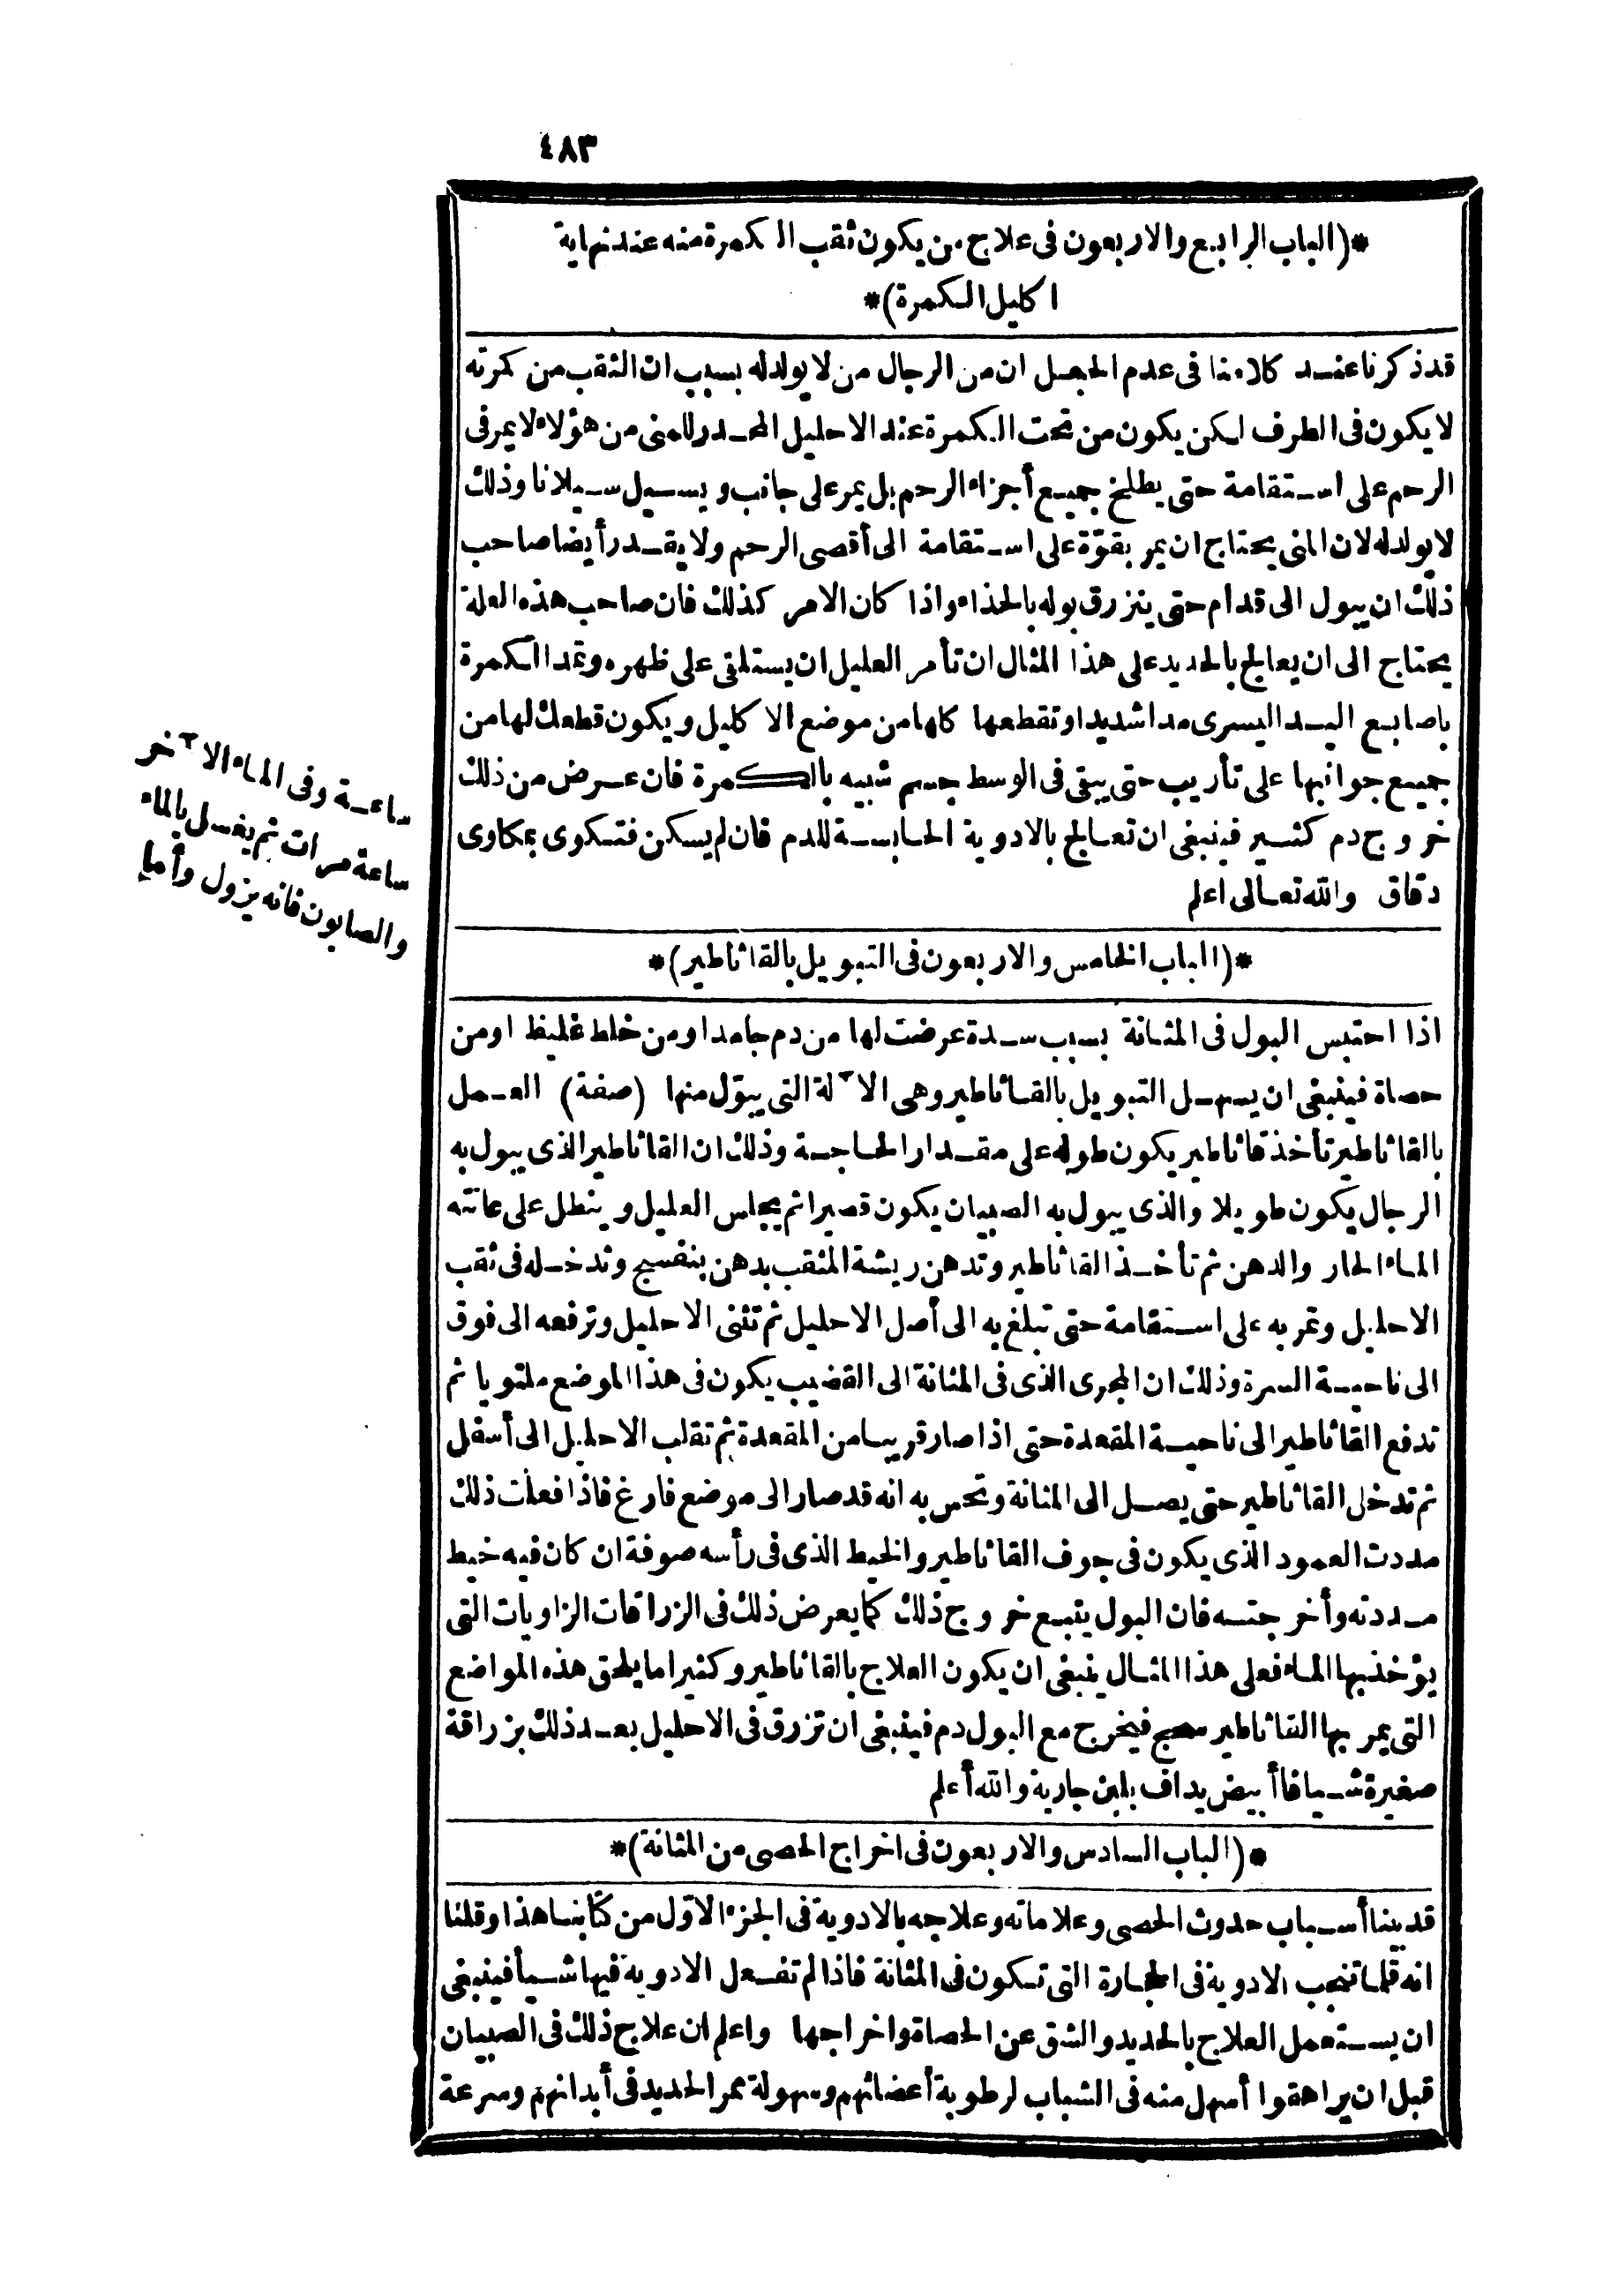 ٤٨٣
*(الباب الرابع والاربعون فى علاج من يكون ثقب الكمرة منه عند نهاية
اكليل الكمرة)*
قد ذكرنا عند كلامنا فى عدم الحبل ان من الرجال من لا يولد له بسبب ان الثقب من كمرته
لا يكون فى الطرف لكن يكون من تحت الكمرة عند الاحليل المحدر للمنى من هؤلاء لا يمر فى
الرحم على استقامة حتى يطلخ جميع أجزاء الرحم بل يمر على جانب ويسيل سيلانا وذلك
لا يولد له لان المنى يحتاج ان يمر بقوّة على استقامة الى أقصى الرحم ولا يقدر أيضا صاحب
ذلك ان يبول الى قدام حتى ينزرق بوله بالحذاء واذا كان الامر كذلك فان صاحب هذه العلة
يحتاج الى ان يعالج بالحديد على هذا المثال ان تأمر العليل ان يستلقى على ظهره وتمد الكمرة
باصابع اليد اليسرى مدا شديدا وتقطعها كلها من موضع الاكليل ويكون قطعك لها من
جميع جوانبها على تأريب حتى يبقى فى الوسط جسم شبيه بالكمرة فان عرض من ذلك
خروج دم كثير فينبغى ان تعالج بالادوية الحابسة للدم فان لم يسكن فتكوى بمكاوى
دقاق والله تعالى اعلم
*(الباب الخامس والاربعون فى التبويل بالقاثاطير)*
اذا احتبس البول فى المثانة بسبب سدة عرضت لها من دم جامد او من خلط غليظ او من
حصاة فينبغى ان يسهل التبويل بالقاثاطير وهى الآلة التى يبوّل منها (صفة) العمل
بالقاثاطير تأخذ قاثاطير يكون طوله على مقدار الحاجة وذلك ان القاثاطير الذى يبول به
الرجال يكون طويلا والذى يبول به الصبيان يكون قصيرا ثم يجلس العليل وينطل على عانته
الماء الحار والدهن ثم تأخذ القاثاطير وتدهن ريشة المثقب بدهن بنفسج وتدخله فى ثقب
الاحليل وتمر به على استقامة حتى تبلغ به الى أصل الاحليل ثم تثنى الاحليل وترفعه الى فوق
الى ناحية السرة وذلك ان المجرى الذى فى المثانة الى القضيب يكون فى هذا الموضع ملتويا ثم
تدفع القاثاطير الى ناحية المقعدة حتى اذا صار قريبا من المقعدة ثم تقلب الاحليل الى أسفل
ثم تدخل القاثاطير حتى يصل الى المثانة وتحس به انه قد صار الى موضع فارغ فاذا فعلت ذلك
مددت العمود الذى يكون فى جوف القاثاطير والخيط الذى فى رأسه صوفة ان كان فيه خيط
مددته وأخرجته فان البول يتبع خروج ذلك كما يعرض ذلك فى الزراقات الزاويات التى
يؤخذ بها الماء فعلى هذا المثال ينبغى ان يكون العلاج بالقاثاطير وكثيرا ما يلحق هذه المواضع
التى يمر بها القاثاطير سحج فيخرج مع البول دم فينبغى ان تزرق فى الاحليل بعد ذلك بزراقة
صغيرة شيافا أبيض يداف بلبن جارية والله أعلم
*(الباب السادس والاربعون فى اخراج الحصى من المثانة)*
قد بينا أسباب حدوث الحصى وعلاماته وعلاجه بالادوية فى الجزء الاوّل من كتابنا هذا وقلنا
انه قلما تنجب الادوية فى الحجارة التى تكون فى المثانة فاذا لم تفعل الادوية فيها شيأ فينبغى
ان يستعمل العلاج بالحديد والشق عن الحصاة واخراجها واعلم ان علاج ذلك فى الصبيان
قبل ان يراهقوا أسهل منه فى الشباب لرطوبة أعضائهم وسهولة ممر الحديد فى أبدانهم وسرعة
ساعة وفى الماء الآخر
ساعة مرات ثم يغسل بالماء
والصابون فانه يزول وأما